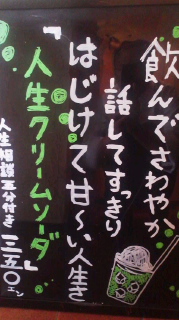 飲んでさわやか
話してすっきり
はじけて甘〜い人生き
「人生クリームソーダ」
人生相談五分付き 三五〇エン